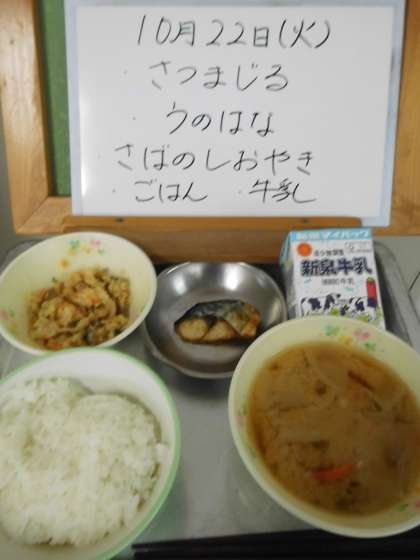 10月22日(火)
・さつまじる
・うのはな
・さばのしおやき
・ごはん ・牛乳
新泉牛乳